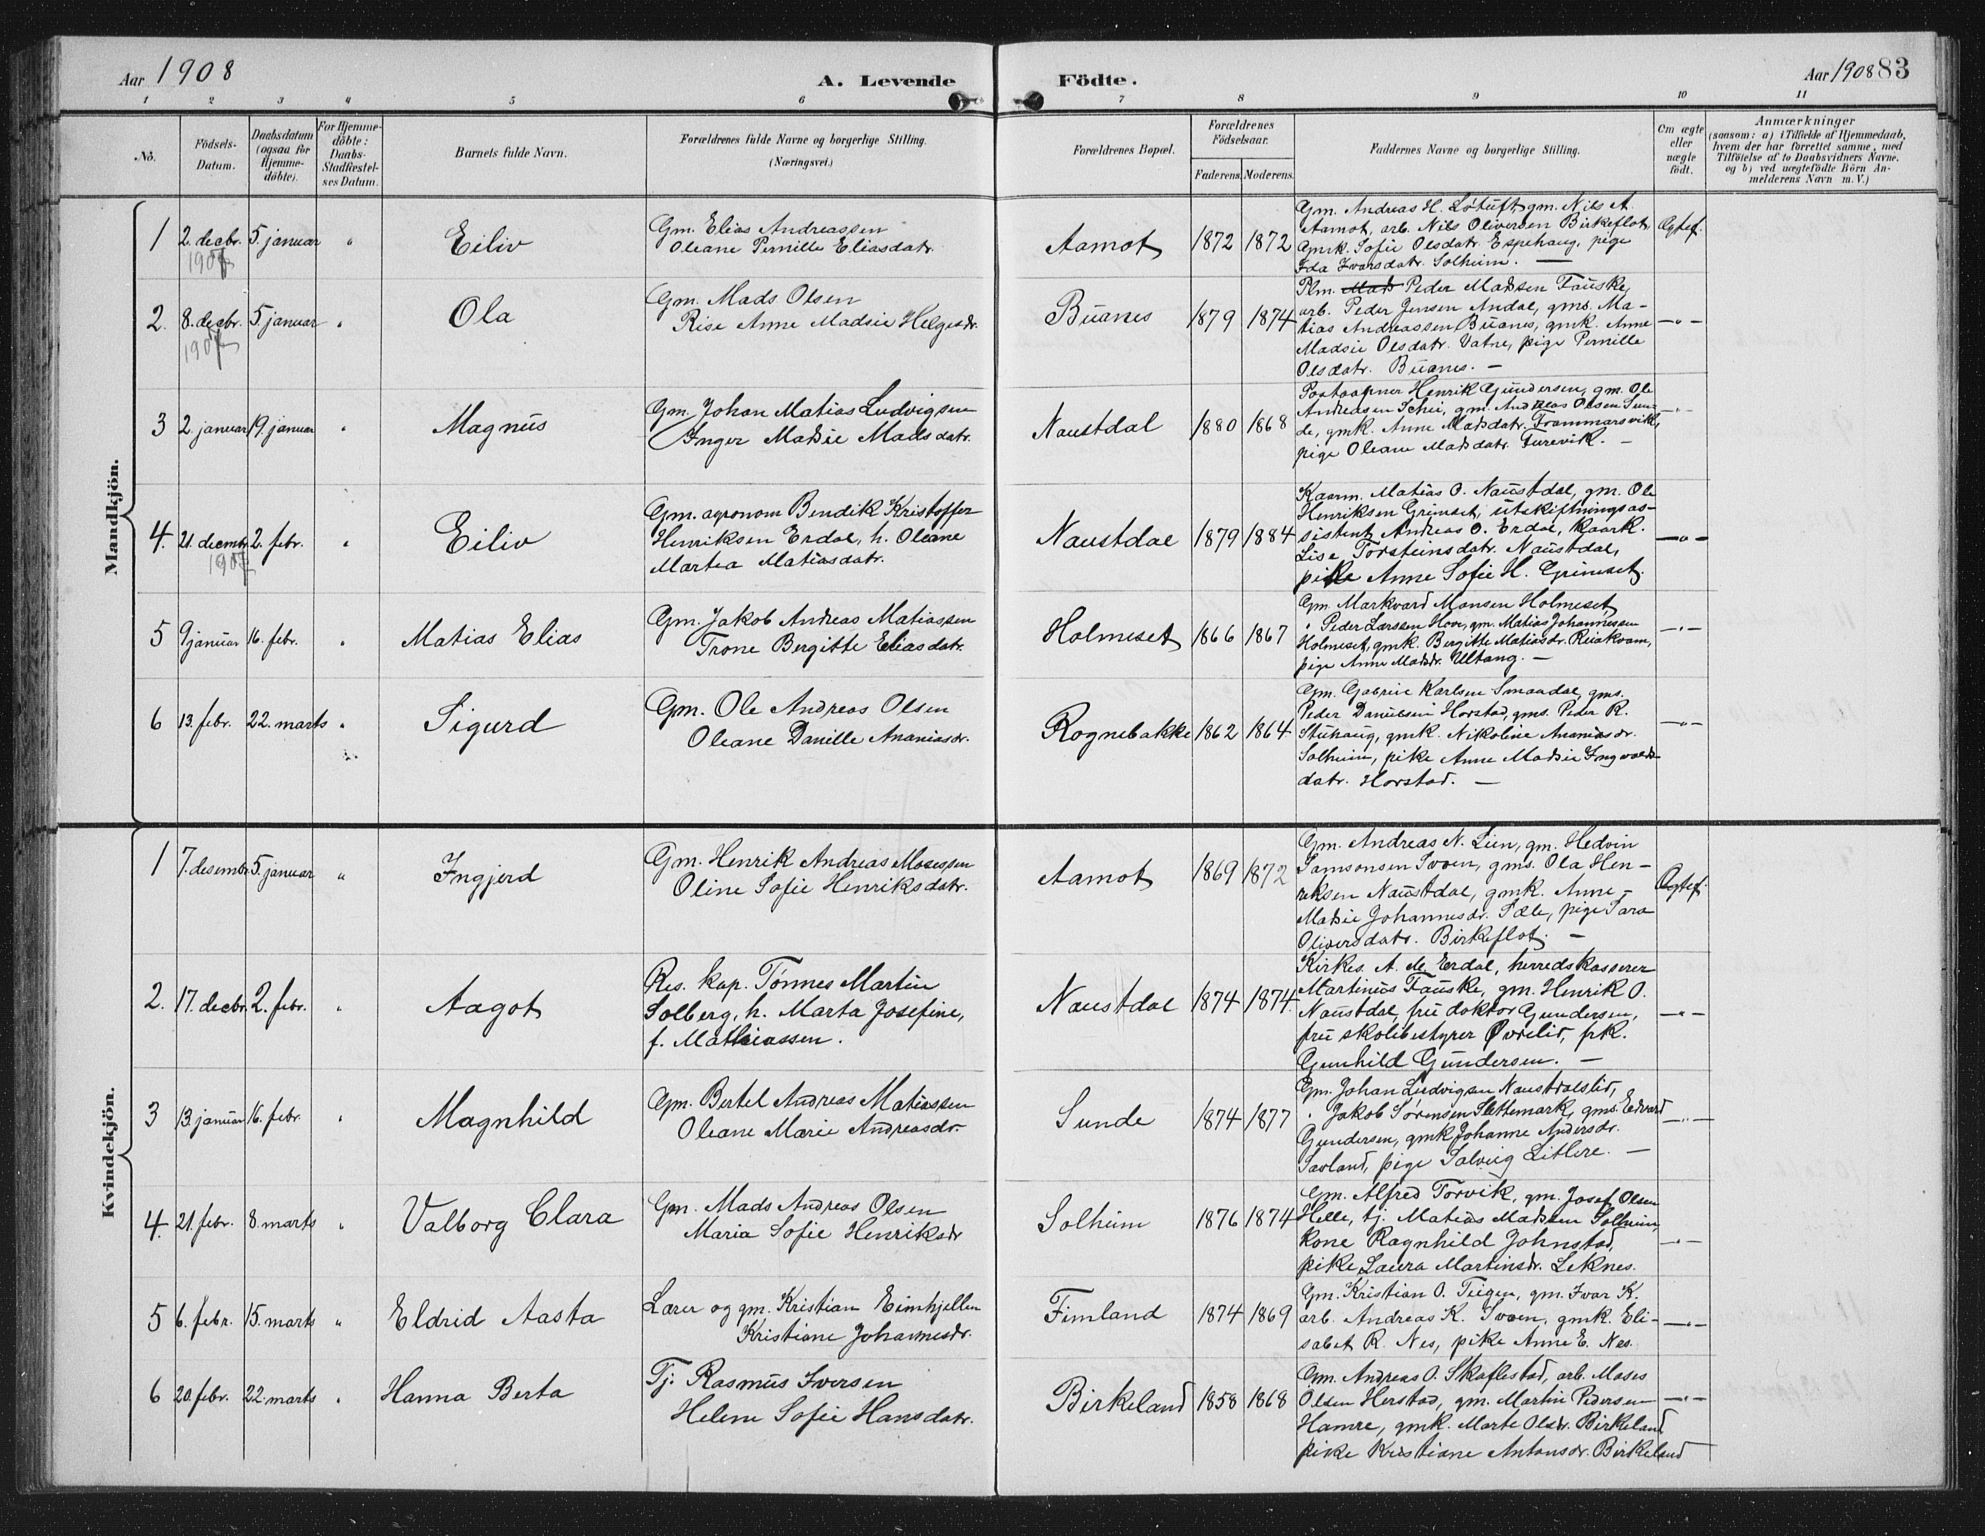 Aar 1908
A. Levende Födte.
Aar 1908 83
1 2 3 4 5 6 7 8 9 10 11
No.
Födsels-
Datum.
Daabsdatum
(ogsaa for
Hjemme-
döbte).
For Hjemme-
döbte:
Daabs-
Stadfæstel-
ses Datum.
Barnets fulde Navn.
Forældrenes fulde Navne og borgerlige Stilling.
(Næringsvei.)
Forældrenes Bopæl.
Forældrenes
Födselsaar.
Faderens. Moderens.
Faddernes Navne og borgerlige Stilling.
Om ægte
eller
uægte
født.
Anmærkninger
(saasom: a) i Tilfælde af Hjemmedaab,
hvem der har forrettet samme, med
Tilföielse af to Daabsvidners Navne.
og b) ved uægtefödte Börn An-
melderens Navn m. V.)
Mandkjön.
1 2. decbr. 1907 5. januar " Eiliv
Gm. Elias Andreassen
Oleane Pernille Eliasdatr.
Aamot 1872 1872
Gm. Andreas H. Løtuft, gm. Nils A.
Aamot, arb. Nils Oliversen Birkeflot,
Gmk. Sofie Olsdatr. Espehaug, pige
Ida Ivarsdatr. Solheim. —
Ægtef.
2. 8. decbr. 1907 5 januar " Ola
Gm. Mads Olsen
Rise Anne Madsie Helgesdr.
Buanes 1879 1874
Plm. Mads Peder Madsen Fauske,
arb. Peder Jensen Andal, gms. Ma-
tias Andreassen Buanes, gmk. Anne
Madsie Olsdatr. Vatne, pige Pernille
Olsdatr. Buanes. —
—"—
3 2 januar 19. januar " Magnus
Gm. Johan Matias Ludvigsen
Inger Madsie Madsdatr.
Naustdal 1880 1868
Postaapner Henrik Gundersen, gm. Ole
Andreasen Schei, gm. Andreas Olsen Sun-
de, gmk. Anne Madsdatr. Frammarsvik,
pige Oleane Madsdatr. Furevik. —
—"—
4. 21. decembr. 1907 2. febr. " Eiliv
Gm. agronom Bendik Kristoffer
Henriksen Erdal, h. Oleane
Martea Matiasdatr.
Naustdal 1879 1884
Kaarm. Matias O. Naustdal, gm. Ole
Henriksen Grimset, utskiftningsas-
sistent Andreas O. Erdal, kaark.
Lise Torsteinsdatr. Naustdal,
pike Anne Sofie H. Grimset.
—"—
5 9 januar 16. febr. " Matias Elias
Gm. Jakob Andreas Matiassen
Trone Bergitte Eliasdatr.
Holmeset 1866 1867
Gm. Markvard Monsen Holmeset,
" Peder Larssen Hove, gm. Matias Johannessen
Holmeset, gmk. Bergitte Matiasdr. Reiakvam,
pige Anne Madsdr. Ullang. —
—"—
6 13. febr. 22. marts " Sigurd
Gm. Ole Andreas Olsen
Oleane Danille Ananiasdr.
Rognebakke 1862 1864
Gm. Gabriel Karlsen Smaadal, gms.
Peder Danielsen Horstad, gms. Peder R.
Stuhaug, gmk. Nikoline Ananiasdr.
Solheim, pike Anne Madsie Ingvalds-
datr. Horstad. —
—"—
Kvindekjön.
1 7. desembr. 5. januar " Ingjerd
Gm. Henrik Andreas Mosessen
Oline Sofie Henriksdatr.
Aamot 1869 1872
Gm. Andreas N. Lien, gm. Hedvin
Samsonsen Svoen, gms. Ola Hen-
riksen Naustdal, gmk. Anne
Madsie Johannesdr. Sæle, pige Sara
Oliversdatr. Birkeflot. —
Ægtef.
2. 17. decbr. 2. febr. " Aagot
Res. kap. Tønnes Martin
Solberg, h. Marta Josefine,
f. Mathiassen.
Naustdal 1874 1874.
Kirkes. A. de Erdal, herredskasserer
Martinus Fauske, gm. Henrik O.
Naustdal, frue doktor Gundersen,
frue skolebestyrer Øvrelid, frk.
Gunhild Gundersen. —
—"—
3 13. januar 16. febr. " Magnhild
Gm. Bertel Andreas Matiassen
Oleane Marie Andreasdr.
Sunde 1874 1877
Gm. Johan Ludvigsen Naustdalslid,
" Jakob Sørensen Slettemark, gms. Edvard
Gundersen, gmk Johanne Andersdr.
Savland, pige Solveig Litlere. —
—"—
4. 21. febr. 8. marts " Valborg Clara
Gm. Mads Andreas Olsen
Maria Sofie Henriksdr
Solheim 1876 1874
Gm. Alfred Torvik, gm. Josef Olsen
Helle, tj. Matias Madssen Solheim,
kone Ragnhild Johnstad,
pike Laura Martinsdr. Leknes.
—"—
5 6. febr. 15. marts " Eldrid Aasta
Lærer og gm. Kristian Eimhjellen
Kristiane Johannesdr.
Fimland 1874 1869
Gm. Kristian O. Teigen, gm. Ivar K.
arb. Andreas K. Svoen, gmk. Eli-
sabet R. Nes, pike Anne E. Nes.
—"—
6 20. febr. 22. marts " Hanna Berta
Tj. Rasmus Iversen
Helene Sofie Hansdatr.
Birkeland 1858 1868
Gm. Andreas O. Skaflestad, arb. Moses
Olsen Herstad, gm. Martin Pedersen
Hamre, gmk. Marte Olsdr. Birkeland
pike Kristiane Antonsdr. Birkeland
—"—